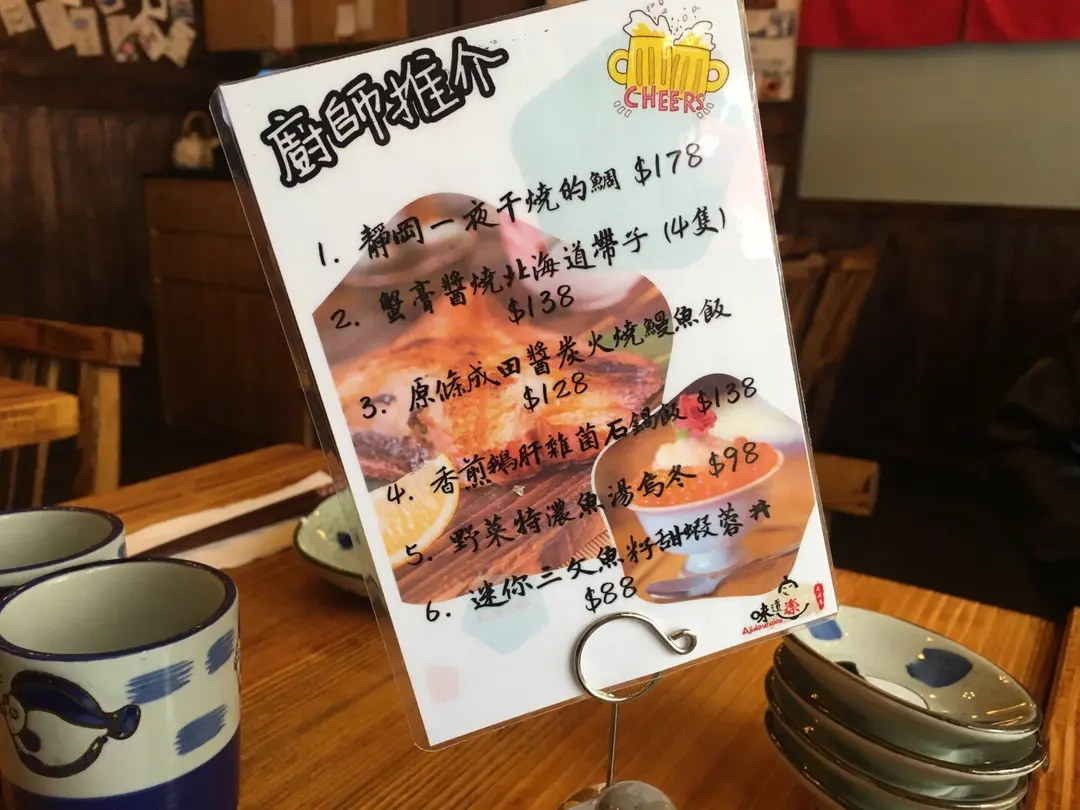 廚師推介
CHEERS
1. 靜岡一夜干燒的鯛 $178
2. 蟹膏醬燒北海道帶子 (4隻)
$138
3. 原條成田醬炭火燒鰻魚飯
$128
4. 香煎鵝肝雜菌石鍋飯 $138
5. 野菜特濃魚湯烏冬 $98
6. 迷你三文魚籽甜蝦蓉丼
$88
味道楽